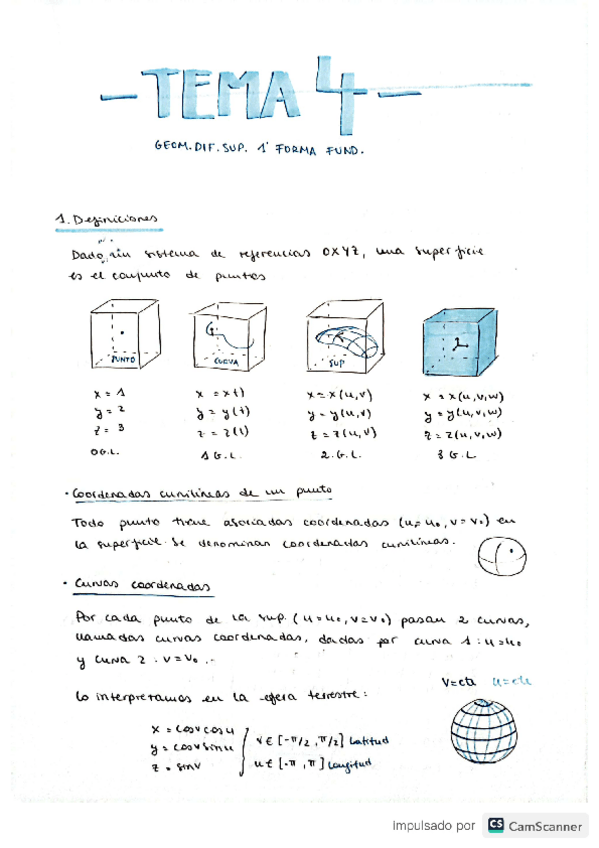 -TEMA 4-
GEOM. DIF. SUP. 1ª FORMA FUND.
1. Definiciones
Dado un sistema de referencias OXYZ, una superficie
es el conjunto de puntos
PUNTO CURVA SUP
x = 1 x = x t) x = x(u,v) x = x(u,v,w)
y = 2 y = y(t) y = y(u,v) y = y(u,v,w)
z = 3 z = z(t) z = z(u,v) z = z(u,v,w)
0 G.L. 1 G.L. 2. G.L. 3 G.L.
· Coordenadas curvilíneas de un punto
Todo punto tiene asociadas coordenadas (u = u₀, v = v₀) en
la superficie. Se denominan coordenadas curvilíneas.
· Curvas coordenadas
Por cada punto de la sup. (u = u₀, v = v₀) pasan 2 curvas,
llamadas curvas coordenadas, dadas por curva 1: u = u₀
y curva 2: v = v₀.
V=cte u=cte
Lo interpretamos en la esfera terrestre:
x = cosv cosu
y = cosv sinu v ∈ [-π/2, π/2] Latitud
z = sinv u ∈ [-π, π] Longitud
Impulsado por CS CamScanner